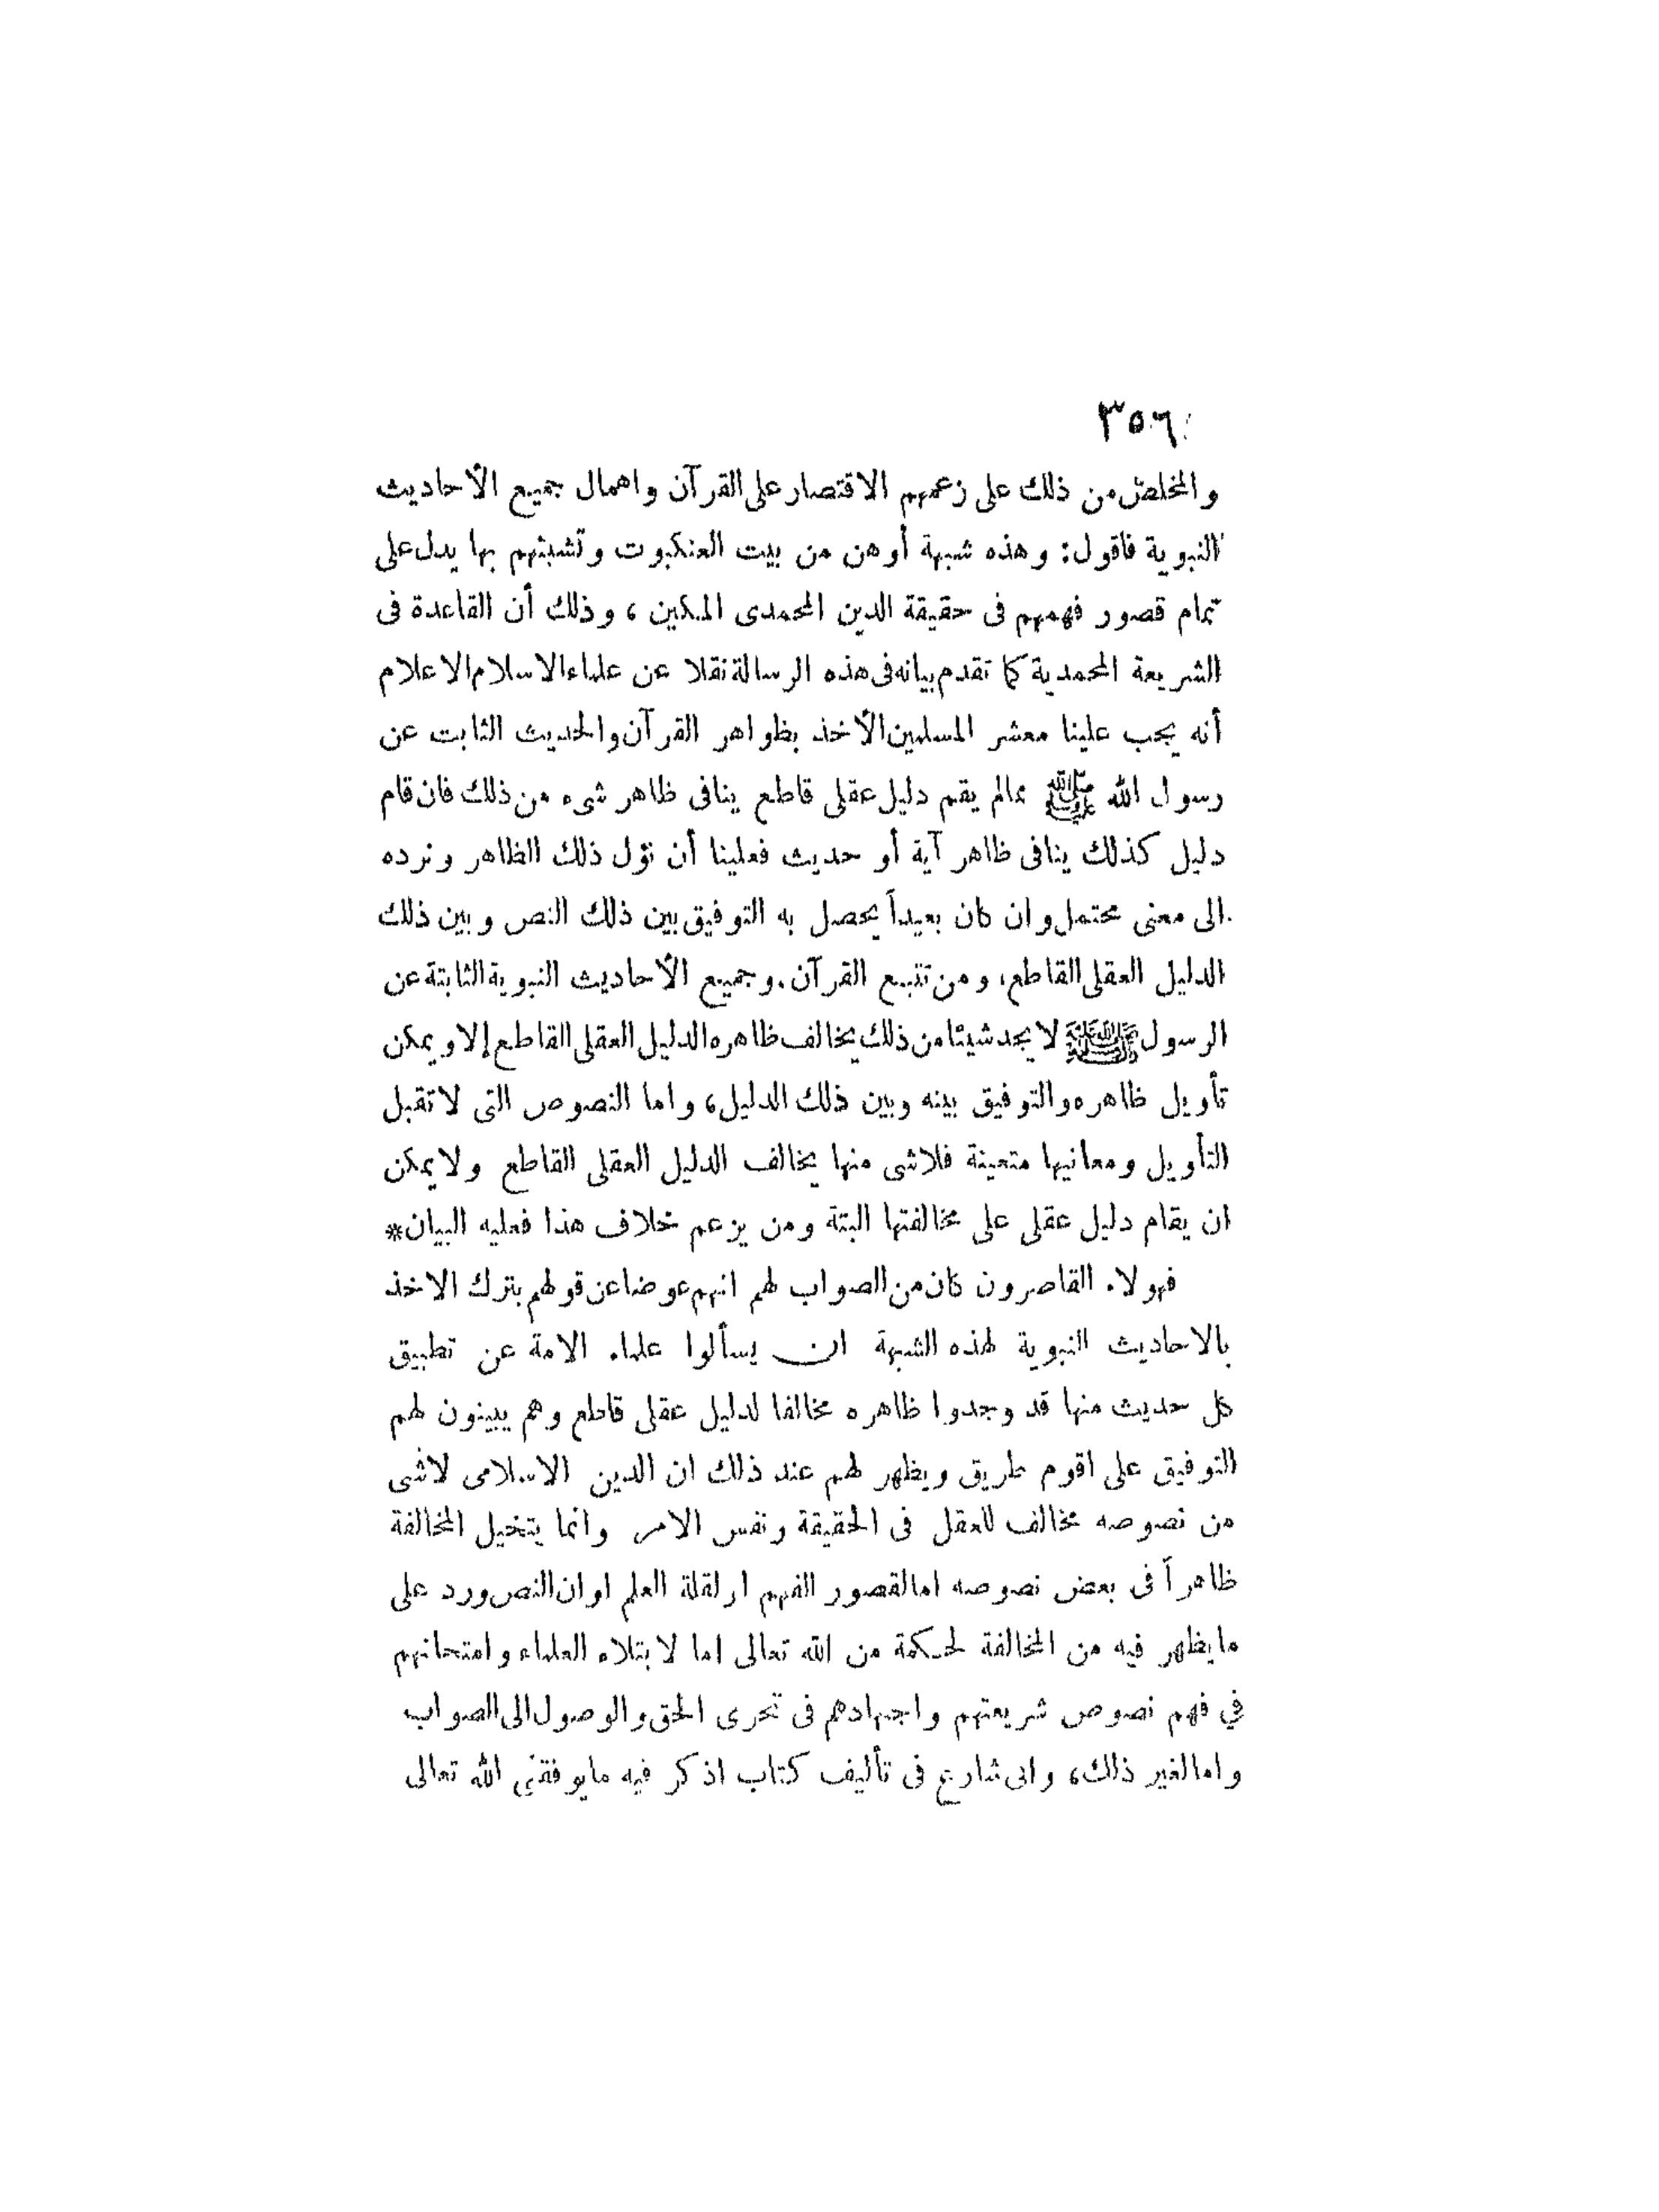 ٣٥٦
والمخلص من ذلك على زعمهم الاقتصار على القرآن واهمال جميع الأحاديث
النبوية فاقول: وهذه شبهة أوهن من بيت العنكبوت وتشبثهم بها يدل على
تمام قصور فهمهم فى حقيقة الدين المحمدى المكين ، وذلك أن القاعدة فى
الشريعة المحمدية كما تقدم بيانه فى هذه الرسالة نقلا عن علماء الاسلام الاعلام
أنه يجب علينا معشر المسلمين الأخذ بظواهر القرآن والحديث الثابت عن
رسول الله ﷺ مالم يقم دليل عقلى قاطع ينافى ظاهر شىء من ذلك فان قام
دليل كذلك ينافى ظاهر آية أو حديث فعلينا أن نؤل ذلك الظاهر ونرده
الى معنى محتمل وان كان بعيداً يحصل به التوفيق بين ذلك النص وبين ذلك
الدليل العقلى القاطع، ومن تتبع القرآن وجميع الأحاديث النبوية الثابتة عن
الرسول ﷺ لا يجد شيئا من ذلك يخالف ظاهره الدليل العقلى القاطع إلا ويمكن
تأويل ظاهره والتوفيق بينه وبين ذلك الدليل، واما النصوص التى لا تقبل
التأويل ومعانيها متعينة فلاشى منها يخالف الدليل العقلى القاطع ولا يمكن
ان يقام دليل عقلى على مخالفتها البتة ومن يزعم خلاف هذا فعليه البيان*
فهولاء القاصرون كان من الصواب لهم انهم عوضا عن قولهم بترك الاخذ
بالاحاديث النبوية لهذه الشبهة ان يسألوا علماء الامة عن تطبيق
كل حديث منها قد وجدوا ظاهره مخالفا لدليل عقلى قاطع وهم يبينون لهم
التوفيق على اقوم طريق ويظهر لهم عند ذلك ان الدين الاسلامى لاشى
من نصوصه مخالف للعقل فى الحقيقة ونفس الامر وانما يتخيل المخالفة
ظاهراً فى بعض نصوصه اما لقصور الفهم او لقلة العلم او ان النص ورد على
ما يظهر فيه من المخالفة لحكمة من الله تعالى اما لابتلاء العلماء وامتحانهم
في فهم نصوص شريعتهم واجتهادهم فى تحرى الحق والوصول الى الصواب
واما لغير ذلك، وانى شارع فى تأليف كتاب اذكر فيه ما يوفقنى الله تعالى